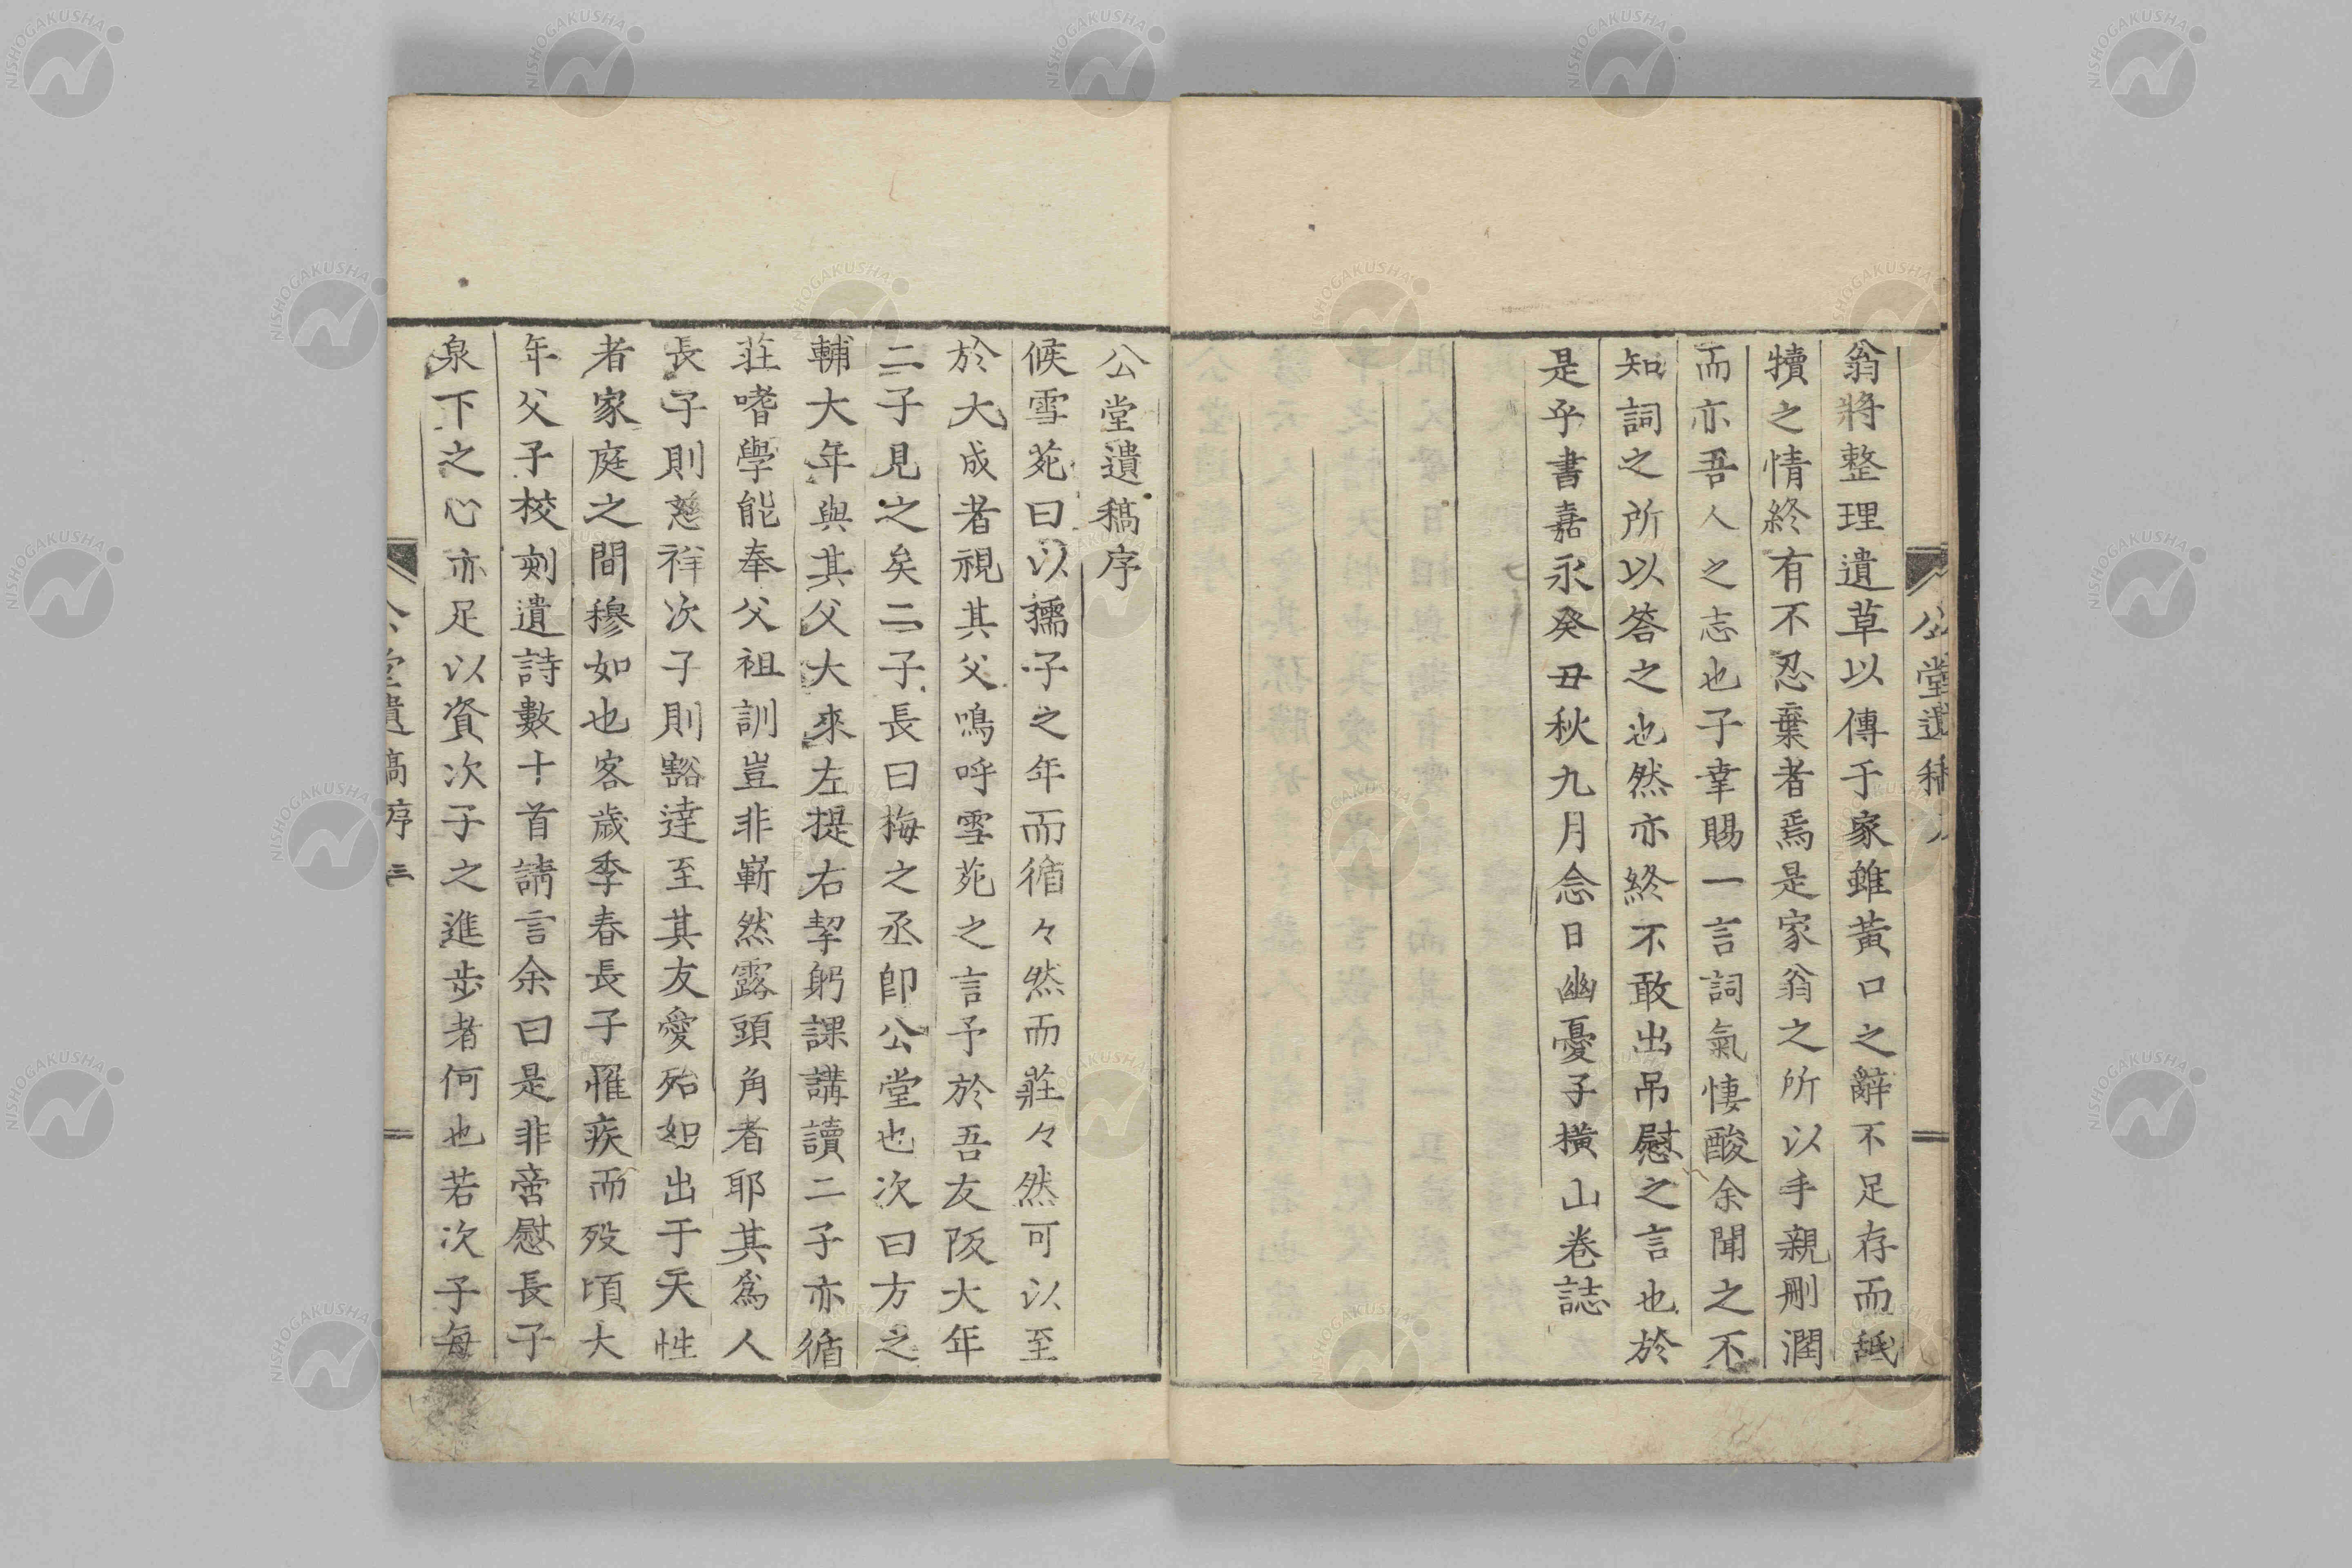 翁將整理遺草以傳于家雖黃口之辭不足存而舐
犢之情終有不忍棄者焉是家翁之所以手親刪潤
而亦吾人之志也子幸賜一言詞氣悽酸余聞之不
知詞之所以答之也然亦終不敢出吊慰之言也於
是乎書嘉永癸丑秋九月念日幽憂子橫山卷誌
公堂遺稿序
候雪苑曰以孺子之年而循々然而莊々然可以至
於大成者視其父鳴呼雪苑之言予於吾友阪大年
二子見之矣二子長曰梅之丞卽公堂也次曰方之
輔大年與其父大來左提右挈躬課講讀二子亦循
莊嗜學能奉父祖訓豈非嶄然露頭角者耶其爲人
長子則慈祥次子則豁達至其友愛殆如出于天性
者家庭之間穆如也客歲季春長子罹疾而歿頃大
年父子校刻遺詩數十首請言余曰是非啻慰長子
泉下之心亦足以資次子之進步者何也若次子每
公堂遺稿序 三
NISHOGAKUSHA